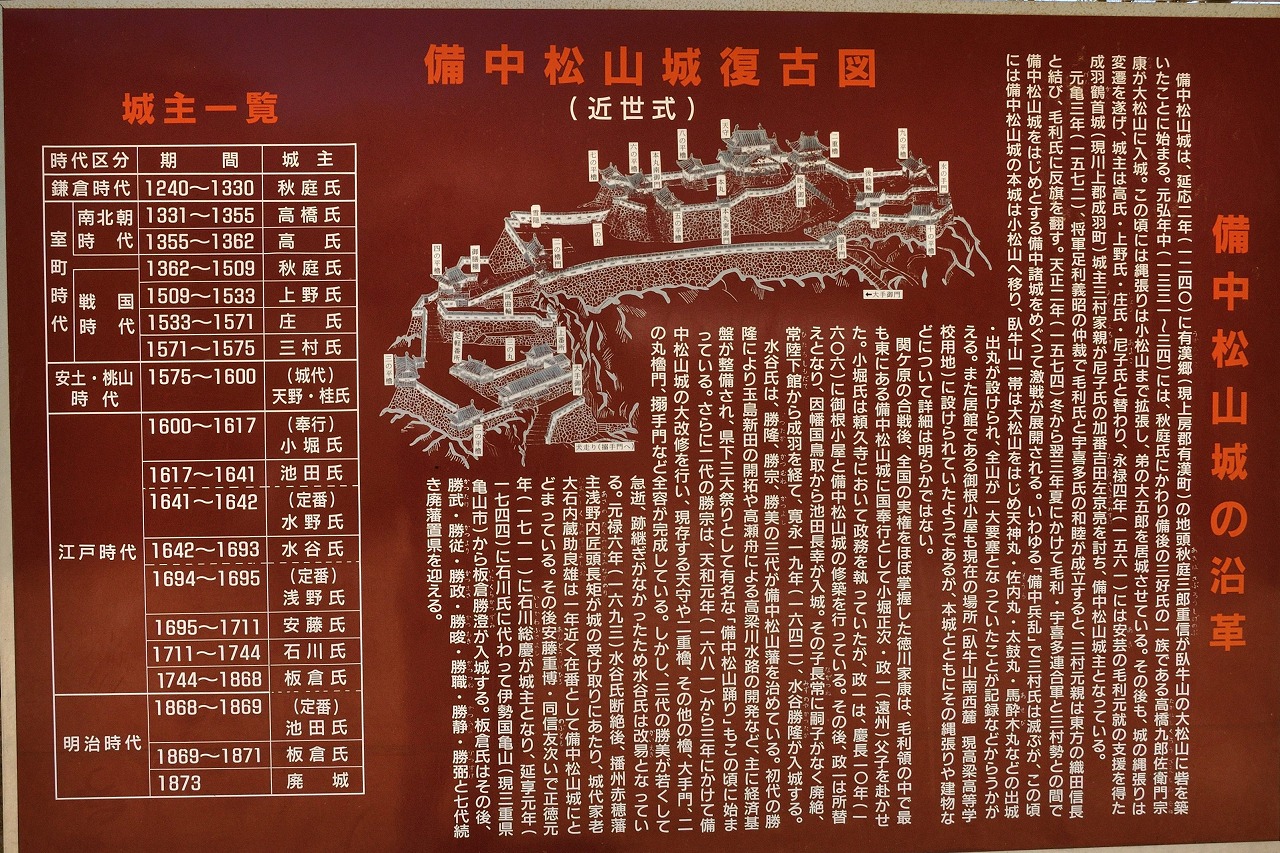 備中松山城の沿革
備中松山城は、延応二年(一二四〇)に有漢郷(現上房郡有漢町)の地頭秋庭三郎重信が臥牛山の大松山に砦を築
いたことに始まる。元弘年中(一三三一〜三四)には、秋庭氏にかわり備後の三好氏の一族である高橋九郎佐衛門宗
康が大松山に入城。この頃には縄張りは小松山まで拡張し、弟の大五郎を居城させている。その後も、城の縄張りは
変遷を遂げ、城主は高氏・上野氏・庄氏・尼子氏と替わり、永禄四年(一五六一)には安芸の毛利元就の支援を得た
成羽鶴首城(現川上郡成羽町)城主三村家親が尼子氏の加番吉田左京亮を討ち、備中松山城主となっている。
元亀三年(一五七二)、将軍足利義昭の仲裁で毛利氏と宇喜多氏の和睦が成立すると、三村元親は東方の織田信長
と結び、毛利氏に反旗を翻す。天正二年(一五七四)冬から翌三年夏にかけて毛利・宇喜多連合軍と三村勢との間で
備中松山城をはじめとする備中諸城をめぐって激戦が展開される。いわゆる「備中兵乱」で三村氏は滅ぶが、この頃
には備中松山城の本城は小松山へ移り、臥牛山一帯は大松山をはじめ天神丸・佐内丸・太鼓丸・馬酔木丸などの出城
・出丸が設けられ、全山が一大要塞となっていたことが記録などからうつかが
える。また居館である御根小屋も現在の場所(臥牛山南西麓 現高梁高等学
校用地)に設けられていたようであるが、本城とともにその縄張りや建物な
どについて詳細は明らかではない。
関ケ原の合戦後、全国の実権をほぼ掌握した徳川家康は、毛利領の中で最
も東にある備中松山城に国奉行として小堀正次・政一(遠州)父子を赴かせ
た。小堀氏は頼久寺において政務を執っていたが、政一は、慶長一〇年(一
六〇六)に御根小屋と備中松山城の修築を行っている。その後、政一は所替
えとなり、因幡国鳥取から池田長幸が入城。その子長常に嗣子がなく廃絶、
常陸下館から成羽を経て、寛永一九年(一六四二)、水谷勝隆が入城する。
水谷氏は、勝隆、勝宗、勝美の三代が備中松山藩を治めている。初代の勝
隆により玉島新田の開拓や高瀬舟による高梁川水路の開発など、主に経済基
盤が整備され、県下三大祭りとして有名な「備中松山踊り」もこの頃に始ま
っている。さらに二代の勝宗は、天和元年(一六八一)から三年にかけて備
中松山城の大改修を行い、現存する天守や二重櫓、その他の櫓、大手門、二
の丸櫓門、搦手門など全容が完成している。しかし、三代の勝美が若くして
急逝、跡継ぎがなかったため水谷氏は改易となってい
る。元禄六年(一六九三)水谷氏断絶後、播州赤穂藩
主浅野内匠頭長矩が城の受け取りにあたり、城代家老
大石内蔵助良雄は一年近く在番として備中松山城にと
どまっている。その後安藤重博・同信友次いで正徳元
年(一七一一)に石川総慶が城主となり、延享元年(
一七四四)に石川氏に代わって伊勢国亀山(現三重県
亀山市)から板倉勝澄が入城する。板倉氏はその後、
勝武・勝従・勝政・勝晙・勝職・勝静・勝弼と七代続
き廃藩置県を迎える。
備中松山城復古図
(近世式)
七の平櫓
六の平櫓
本丸南御門
八の平櫓
天守
二重櫓
九の平櫓
水の手門
本丸
本丸東御門
腕木御門
五の平櫓
後曲輪
番所
十の平櫓
雪隠
二の丸
二の櫓門
四の平櫓
御膳棚
厩曲輪
路地門
←大手御門
足軽番所
三の丸
上番所
三の平櫓
大手御門
二の平櫓
犬走り(搦手門へ)
城主一覧
時代区分 期間 城主
鎌倉時代 1240〜1330 秋庭氏
室町時代 南北朝時代 1331〜1355 高橋氏
1355〜1362 高氏
1362〜1509 秋庭氏
戦国時代 1509〜1533 上野氏
1533〜1571 庄氏
1571〜1575 三村氏
安土・桃山時代 1575〜1600 (城代)天野・桂氏
江戸時代 1600〜1617 (奉行)小堀氏
1617〜1641 池田氏
1641〜1642 (定番)水野氏
1642〜1693 水谷氏
1694〜1695 (定番)浅野氏
1695〜1711 安藤氏
1711〜1744 石川氏
1744〜1868 板倉氏
明治時代 1868〜1869 (定番)池田氏
1869〜1871 板倉氏
1873 廃城